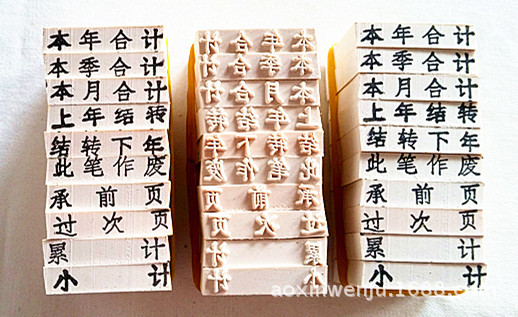 本年合计
本季合计
本月合计
上年结转
结转下年
此笔作废
承前页
过次页
累计
小计
本年合计
本季合计
本月合计
上年结转
结转下年
此笔作废
承前页
过次页
累计
小计
本年合计
本季合计
本月合计
上年结转
结转下年
此笔作废
承前页
过次页
累计
小计
aoxinwenju.1688.com